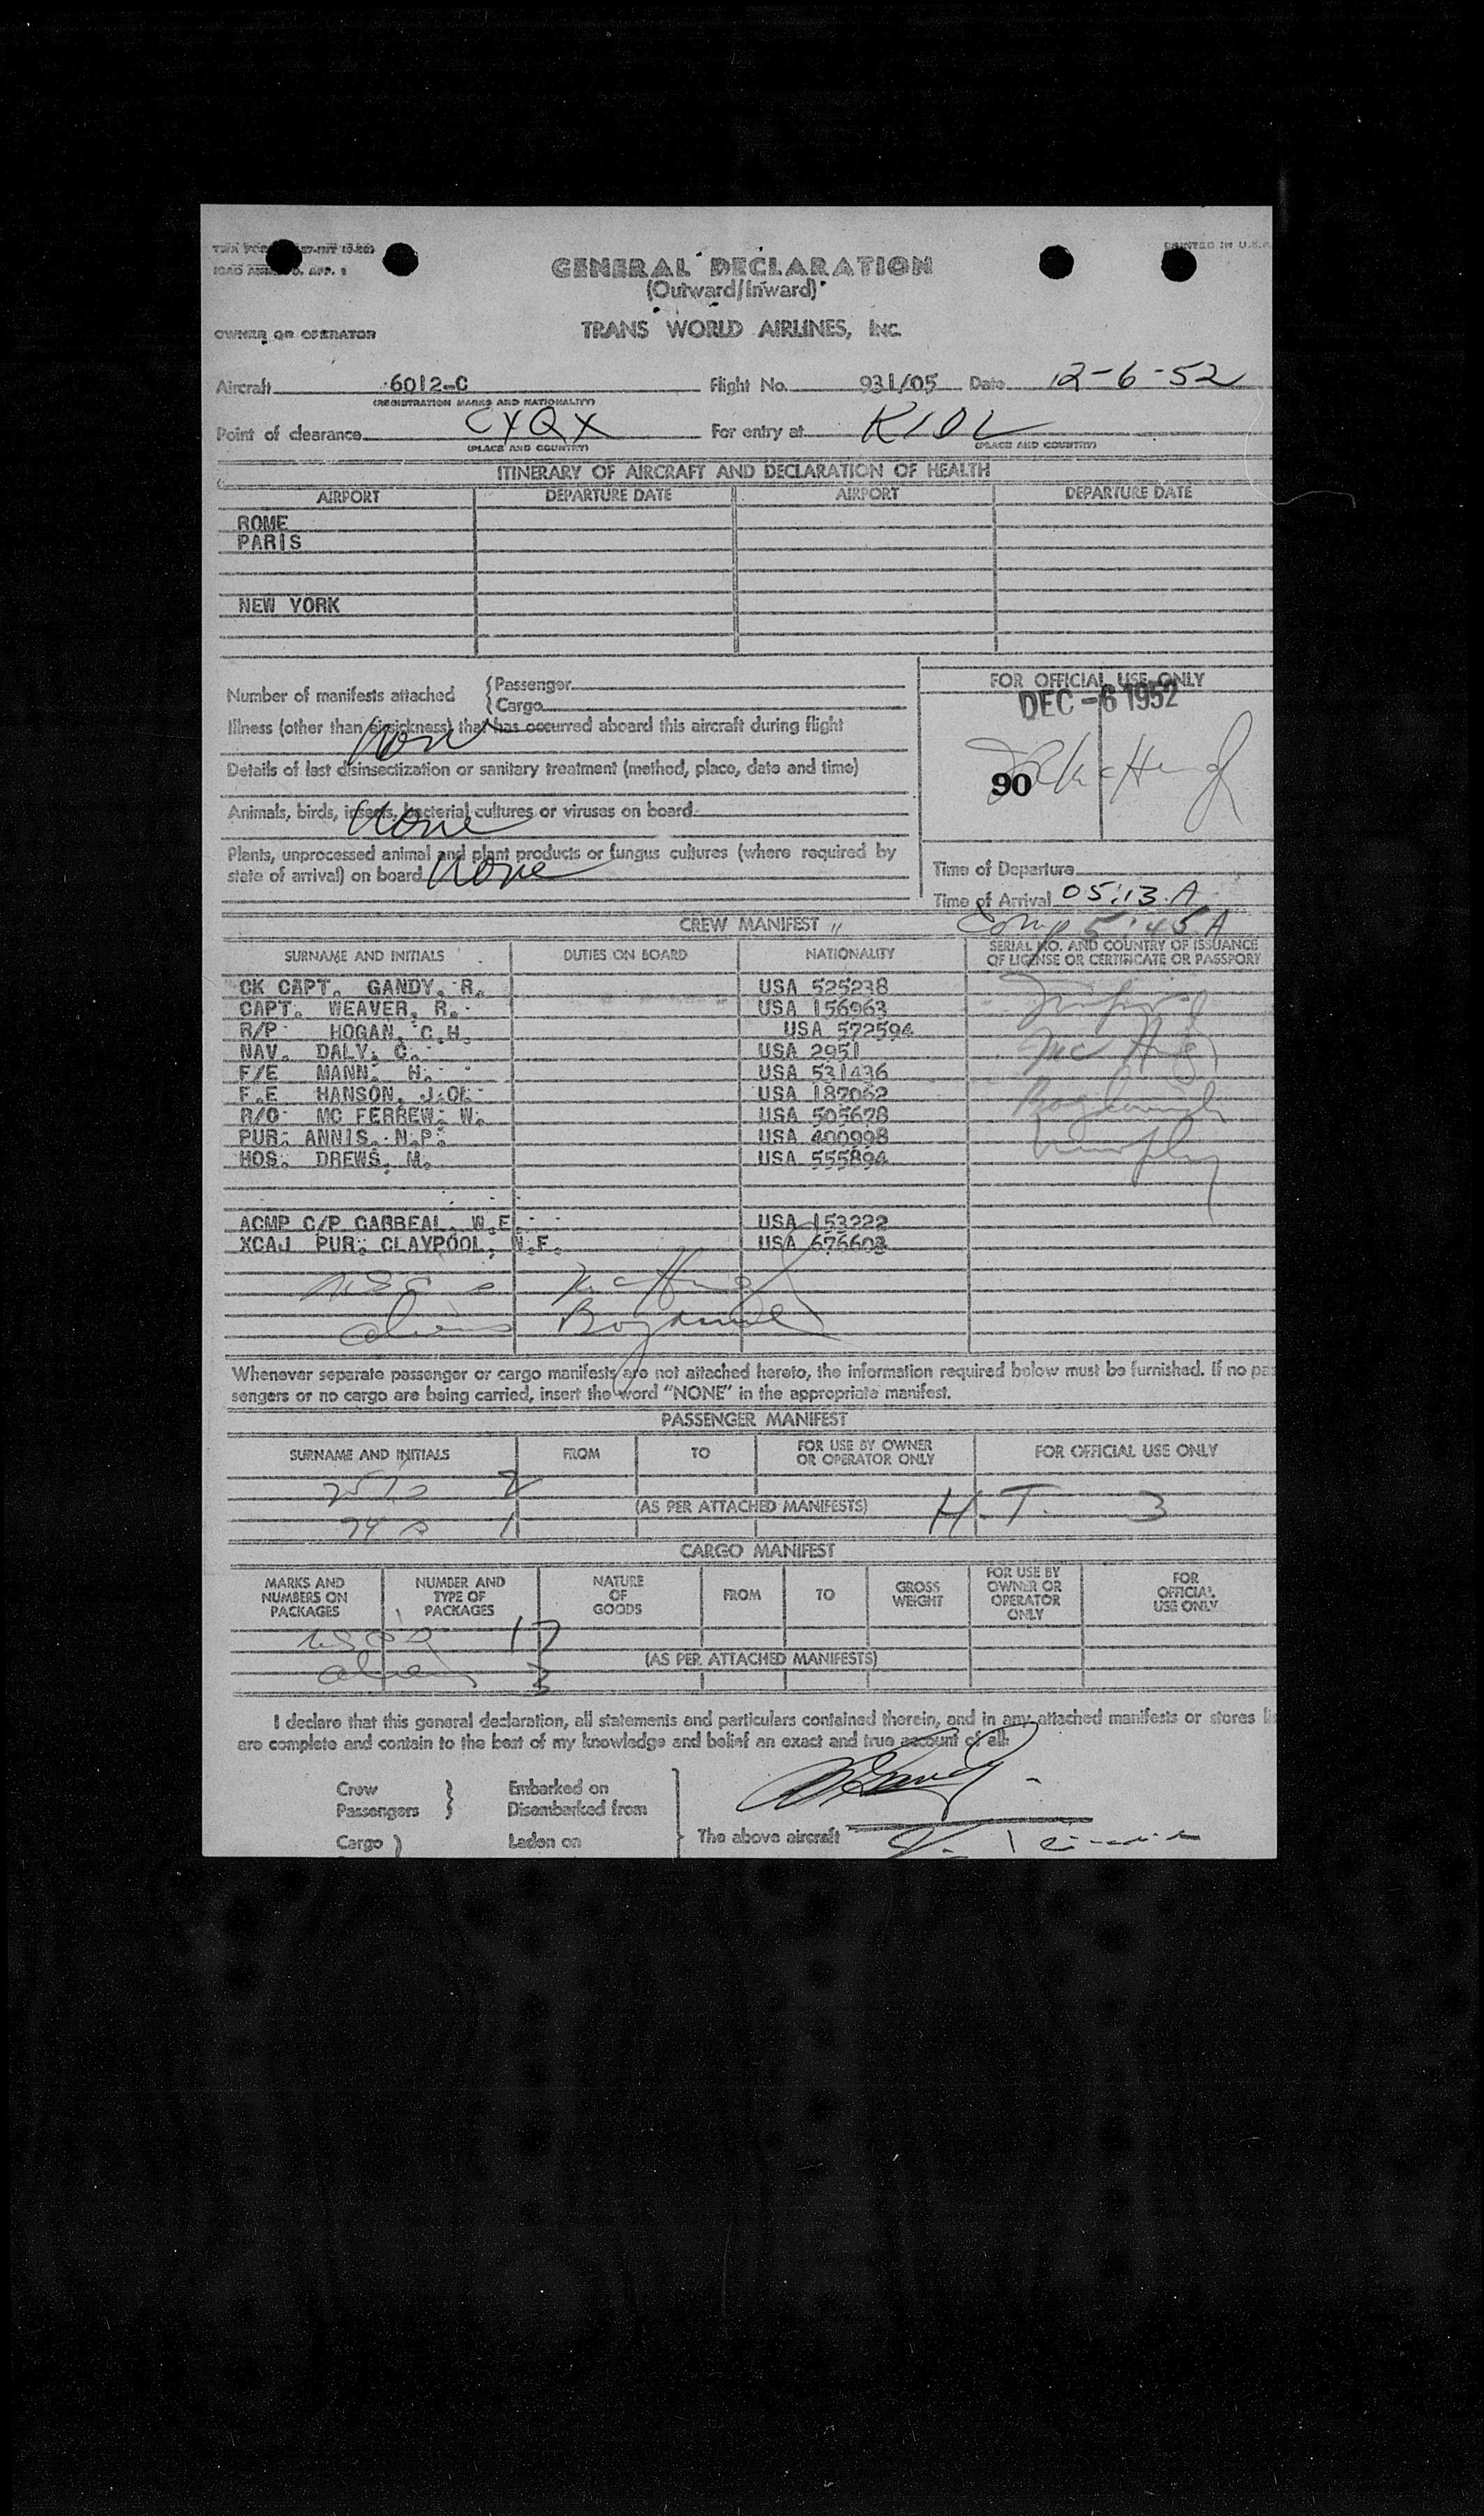 PRINTED IN U.S.A.
GENERAL DECLARATION
(Outward/Inward)
OWNER OR OPERATOR TRANS WORLD AIRLINES, INC.
Aircraft 6012-C Flight No. 931/05 Date 12-6-52
(REGISTRATION MARKS AND NATIONALITY)
Point of clearance CYQX For entry at KIDL
(PLACE AND COUNTRY) (PLACE AND COUNTRY)
ITINERARY OF AIRCRAFT AND DECLARATION OF HEALTH
AIRPORT DEPARTURE DATE AIRPORT DEPARTURE DATE
ROME
PARIS
NEW YORK
Number of manifests attached {Passenger
{Cargo
FOR OFFICIAL USE ONLY
DEC -6 1952
Illness (other than airsickness) that has occurred aboard this aircraft during flight
Details of last disinsectization or sanitary treatment (method, place, date and time)
90
Animals, birds, insects, bacterial cultures or viruses on board
None
Plants, unprocessed animal and plant products or fungus cultures (where required by
state of arrival) on board None
Time of Departure
Time of Arrival 05:13 A
Comp 5:45 A
CREW MANIFEST
SURNAME AND INITIALS DUTIES ON BOARD NATIONALITY SERIAL NO. AND COUNTRY OF ISSUANCE
OF LICENSE OR CERTIFICATE OR PASSPORT
CK CAPT. GANDY, R. USA 525238
CAPT. WEAVER, R. USA 156963
R/P HOGAN, C.H. USA 572594
NAV. DALY, C. USA 2951
F/E MANN, H. USA 531436
F.E HANSON, J.O. USA 187062
R/O MC FERREW, W. USA 505678
PUR. ANNIS, N.P. USA 400998
HOS. DREWS, M. USA 555894
ACMP C/P CARREAL, W.E. USA 153222
XCAJ PUR. CLAYPOOL, N.F. USA 676603
Whenever separate passenger or cargo manifests are not attached hereto, the information required below must be furnished. If no pas
sengers or no cargo are being carried, insert the word "NONE" in the appropriate manifest.
PASSENGER MANIFEST
SURNAME AND INITIALS FROM TO FOR USE BY OWNER
OR OPERATOR ONLY FOR OFFICIAL USE ONLY
2
(AS PER ATTACHED MANIFESTS) H.T. 3
1
CARGO MANIFEST
MARKS AND
NUMBERS ON
PACKAGES
NUMBER AND
TYPE OF
PACKAGES
NATURE
OF
GOODS
FROM
TO
GROSS
WEIGHT
FOR USE BY
OWNER OR
OPERATOR
ONLY
FOR
OFFICIAL
USE ONLY
17
(AS PER ATTACHED MANIFESTS)
aliens 3
I declare that this general declaration, all statements and particulars contained therein, and in any attached manifests or stores lis
are complete and contain to the best of my knowledge and belief an exact and true account of all:
Crew } Embarked on
Passengers } Disembarked from
Cargo ) Laden on } The above aircraft